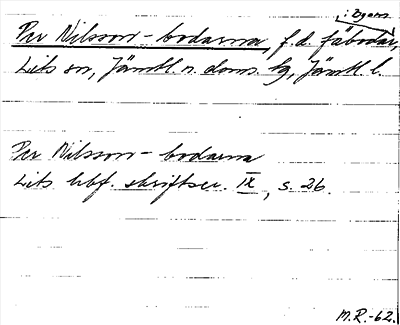 i Byarn
Per Nilsson-bodarna, f.d. fäbodar,
Lits sn, Jämtl. n. doms. tg, Jämtl. l.
Per Nilsson-bodarna
Lits hbf. skriftser. IX, s. 26.
M.R.-62.